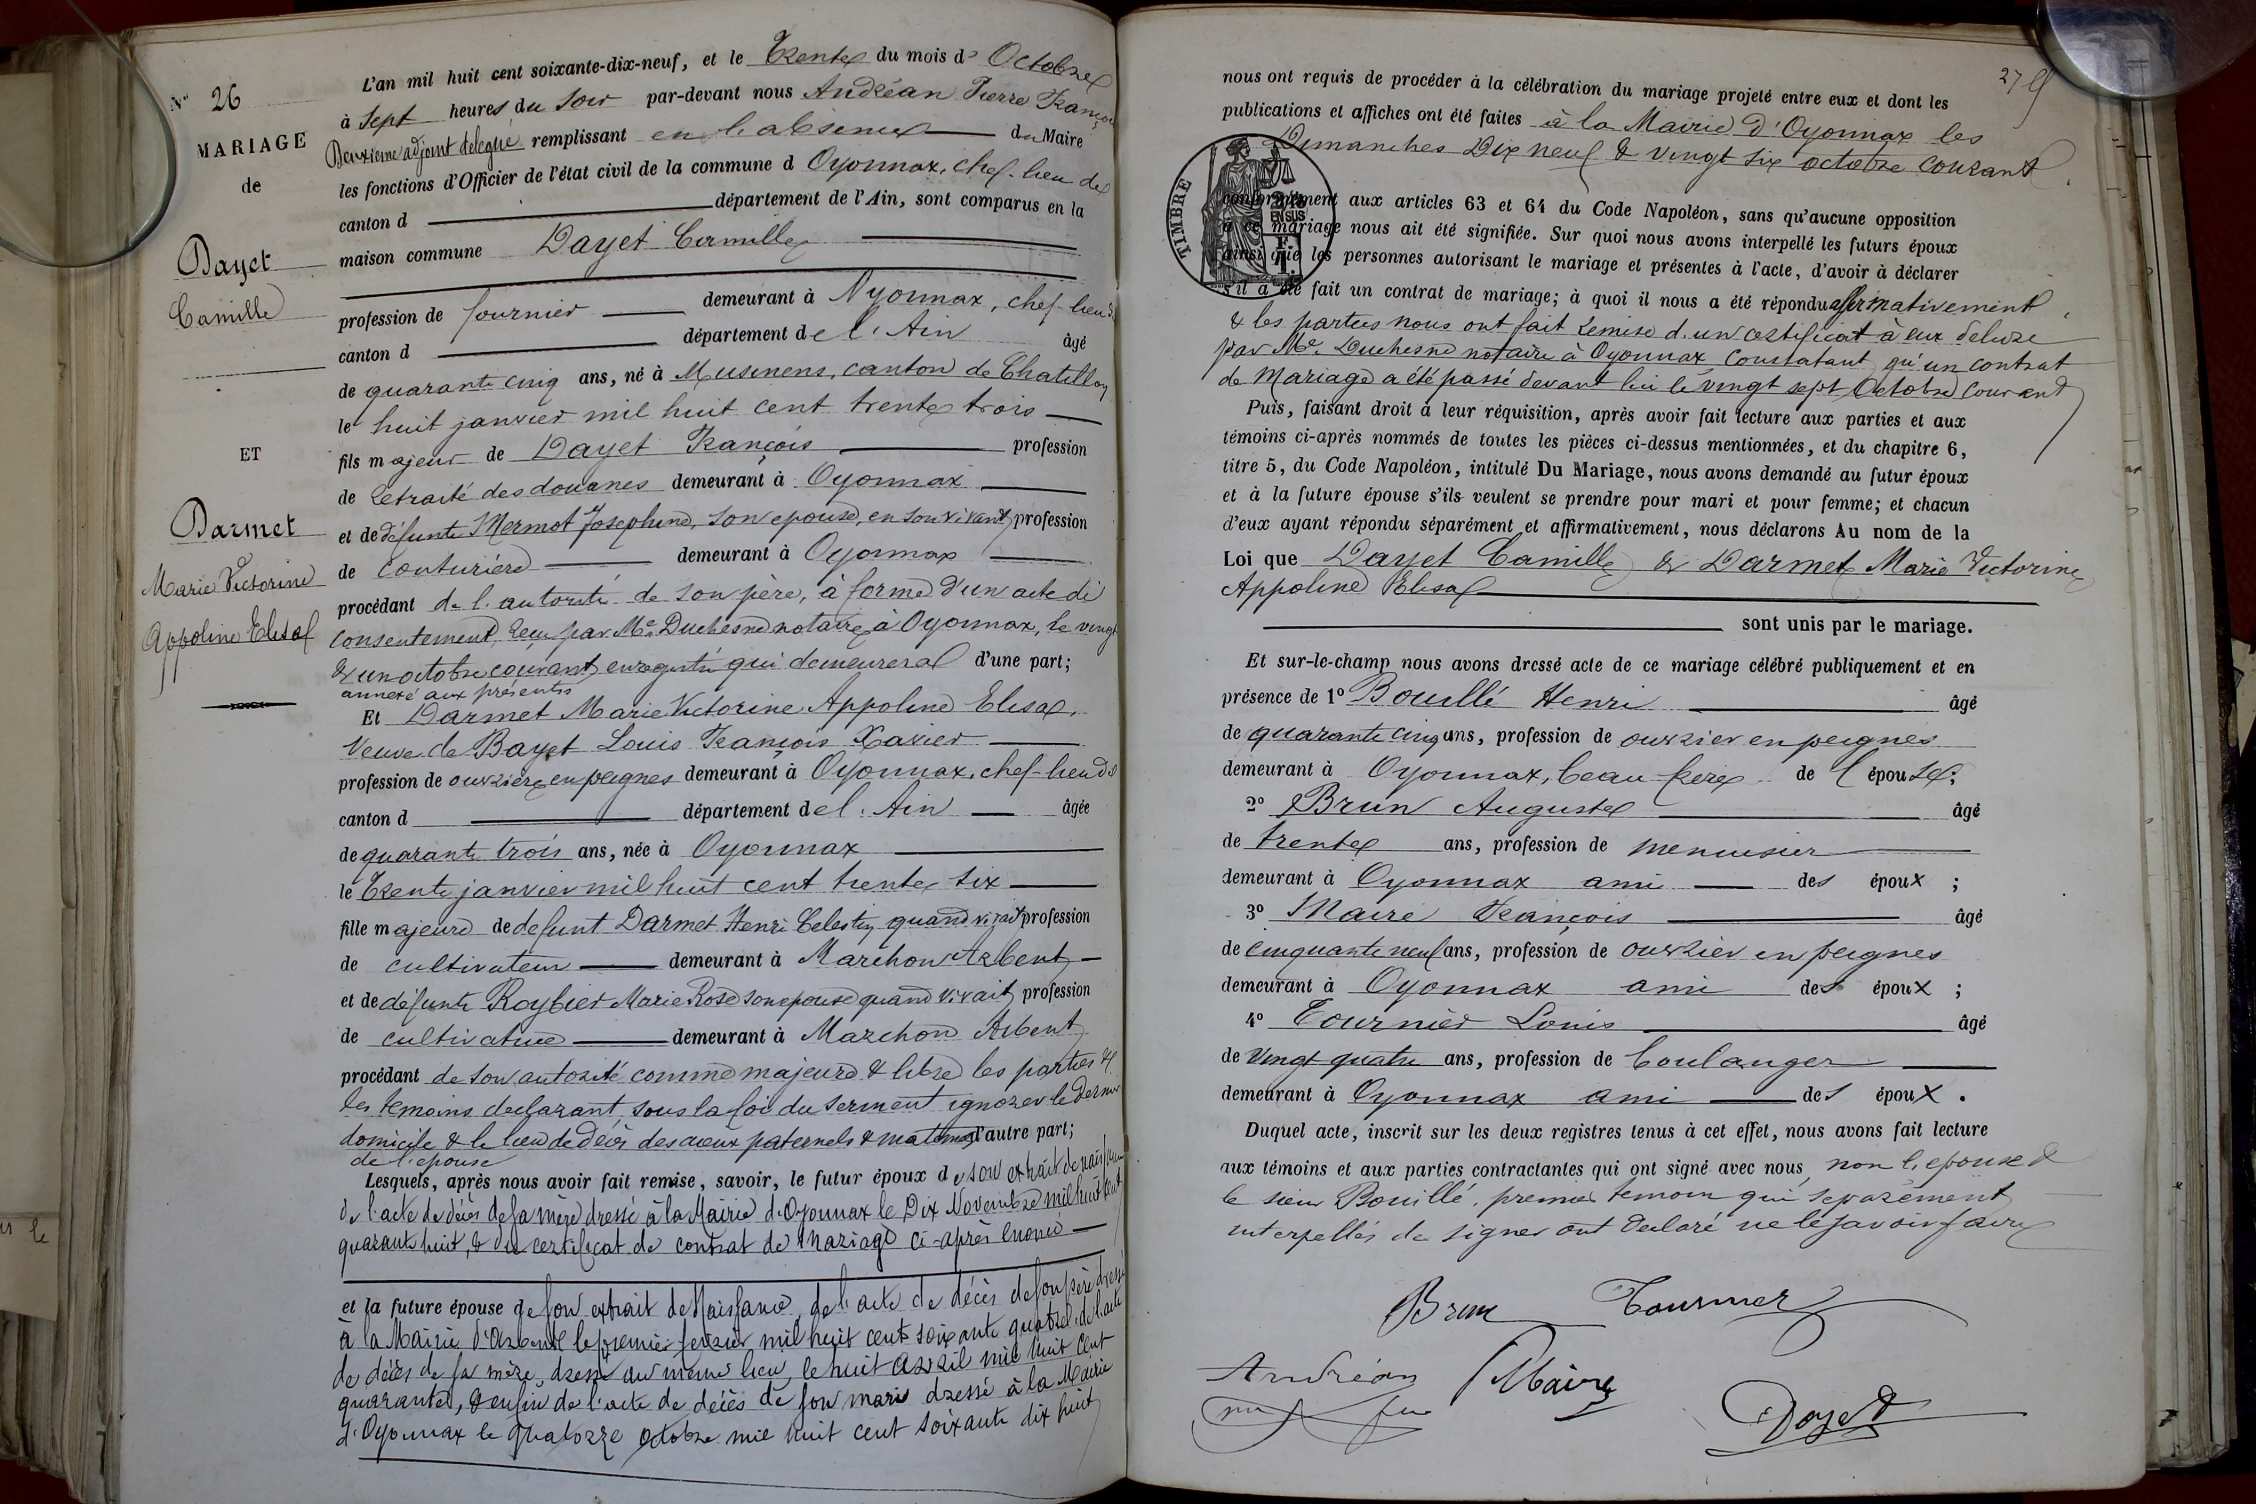 N° 26
MARIAGE
de
Dayet
Camille
ET
Darmet
Marie Victorine
Appoline Elisa
L'an mil huit cent soixante-dix-neuf, et le Trente du mois d' Octobre
à Sept heures du Soir par-devant nous Andréan Pierre François
Deuxième adjoint délégué remplissant en l'absence du Maire
les fonctions d'Officier de l'état civil de la commune d Oyonnax, chef-lieu de
canton d département de l'Ain, sont comparus en la
maison commune Dayet Camille
profession de fournier demeurant à Oyonnax, chef-lieu de
canton d département de l'Ain âgé
de quarante cinq ans, né à Musinens, canton de Chatillon
le huit janvier mil huit cent trente trois
fils majeur de Dayet François profession
de retraité des douanes demeurant à Oyonnax
et de défunte Mermot Josephine, son epouse, en son vivant profession
de couturière demeurant à Oyonnax
procédant de l'autorité de son père, à forme d'un acte de
consentement, reçu par Me Duchesne notaire à Oyonnax, le vingt
& un octobre courant, enregistré qui demeurera d'une part;
annexé aux présentes
Et Darmet Marie Victorine Appoline Elisa,
Veuve de Bayet Louis François Xavier
profession de ouvrière en peignes demeurant à Oyonnax, chef-lieu de
canton d département de l'Ain âgée
de quarante trois ans, née à Oyonnax
le Trente janvier mil huit cent trente six
fille majeure de defunt Darmet Henri Celestin quand vivait profession
de cultivateur demeurant à Marchon Arbent
et de défunte Roybier Marie Rose son epouse quand vivait profession
de cultivatrice demeurant à Marchon Arbent
procédant de son autorité comme majeure & libre les parties &
les témoins declarant sous la foi du serment ignorer le dernier
domicile & le lieu de décès des aïeux paternels & maternels d'autre part;
de l'épouse
Lesquels, après nous avoir fait remise, savoir, le futur époux de son extrait de naissance
de l'acte de décès de sa mère dressé à la Mairie d'Oyonnax le Dix Novembre mil huit cent
quarante huit, & du certificat de contrat de mariage ci-après énoncé
et la future épouse de son extrait de Naissance, de l'acte de décès de son père dressé
à la Mairie d'Arbent le premier fevrier mil huit cent soixante quatre, de l'acte
de décès de sa mère, dressé au même lieu, le huit avril mil huit cent
quarante, & enfin de l'acte de décès de son mari dressé à la Mairie
d'Oyonnax le quatorze octobre mil huit cent soixante dix huit
279
nous ont requis de procéder à la célébration du mariage projeté entre eux et dont les
publications et affiches ont été faites à la Mairie d'Oyonnax les
Dimanches Dix neuf & vingt six octobre courant
TIMBRE
2/10
EN SUS
F.
1.
conformément aux articles 63 et 64 du Code Napoléon, sans qu'aucune opposition
à ce mariage nous ait été signifiée. Sur quoi nous avons interpellé les futurs époux
ainsi que les personnes autorisant le mariage et présentes à l'acte, d'avoir à déclarer
s'il a été fait un contrat de mariage; à quoi il nous a été répondu affirmativement
& les parties nous ont fait remise d'un certificat à eux delivré
par Me. Duchesne notaire à Oyonnax constatant qu'un contrat
de Mariage a été passé devant lui le vingt sept Octobre courant
Puis, faisant droit à leur réquisition, après avoir fait lecture aux parties et aux
témoins ci-après nommés de toutes les pièces ci-dessus mentionnées, et du chapitre 6,
titre 5, du Code Napoléon, intitulé Du Mariage, nous avons demandé au futur époux
et à la future épouse s'ils veulent se prendre pour mari et pour femme; et chacun
d'eux ayant répondu séparément et affirmativement, nous déclarons Au nom de la
Loi que Dayet Camille & Darmet Marie Victorine
Appoline Elisa
sont unis par le mariage.
Et sur-le-champ nous avons dressé acte de ce mariage célébré publiquement et en
présence de 1° Bouillé Henri âgé
de quarante cinq ans, profession de ouvrier en peignes
demeurant à Oyonnax, beau frère de l'épouse;
2° Brun Auguste âgé
de trente ans, profession de menuisier
demeurant à Oyonnax ami des époux ;
3° Maire François âgé
de cinquante neuf ans, profession de ouvrier en peignes
demeurant à Oyonnax ami des époux ;
4° Tournier Louis âgé
de vingt quatre ans, profession de boulanger
demeurant à Oyonnax ami des époux .
Duquel acte, inscrit sur les deux registres tenus à cet effet, nous avons fait lecture
aux témoins et aux parties contractantes qui ont signé avec nous, non l'epouse &
le sieur Bouillé, premier temoin qui separément
interpellés de signer ont declaré ne le savoir faire
Brun Tournier
Andréan Maire
Dayet